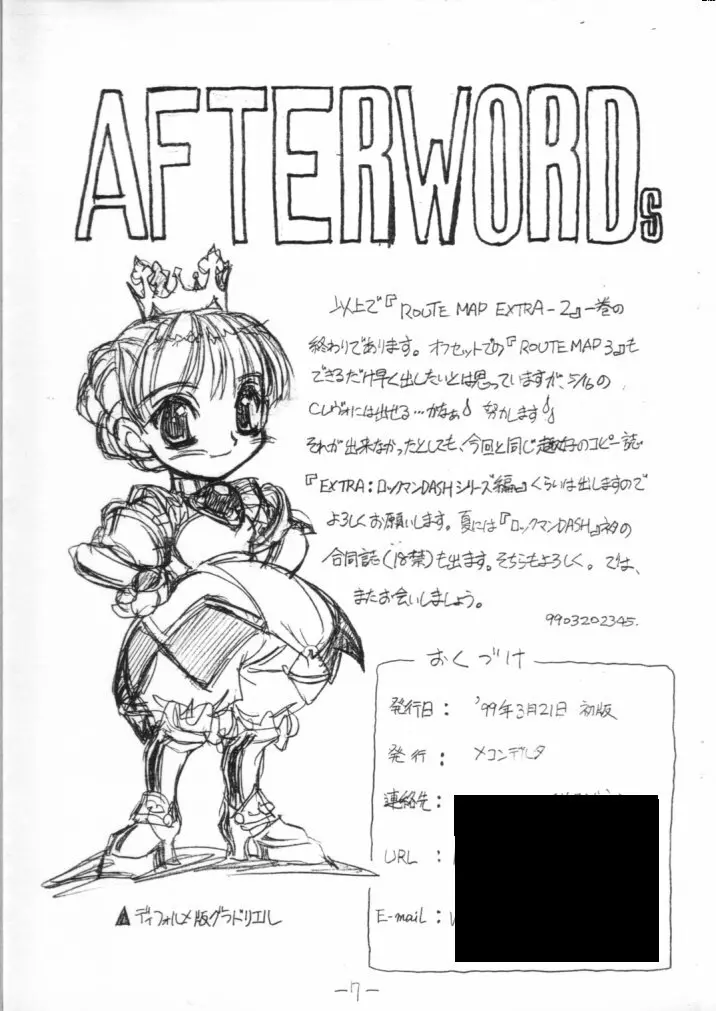 AFTERWORDS
以上で『ROUTE MAP EXTRA-2』一巻の
終わりであります。オフセットでの『ROUTE MAP 3』も
できるだけ早く出したいとは思っていますが、5/16の
Cレヴォには出せる…かなぁ 努力します
それが出来なかったとしても、今回と同じ趣好のコピー誌
『EXTRA:ロックマンDASHシリーズ編』くらいは出しますので
よろしくお願いします。夏には『ロックマンDASH』ネタの
合同誌(18禁)も出ます。そちらもよろしく。では、
またお会いしましょう。
9903202345.
おくづけ
発行日: '99年3月21日 初版
発行: メコンデルタ
連絡先:
URL:
E-mail:
▲ディフォルメ版グラドリエル
-7-